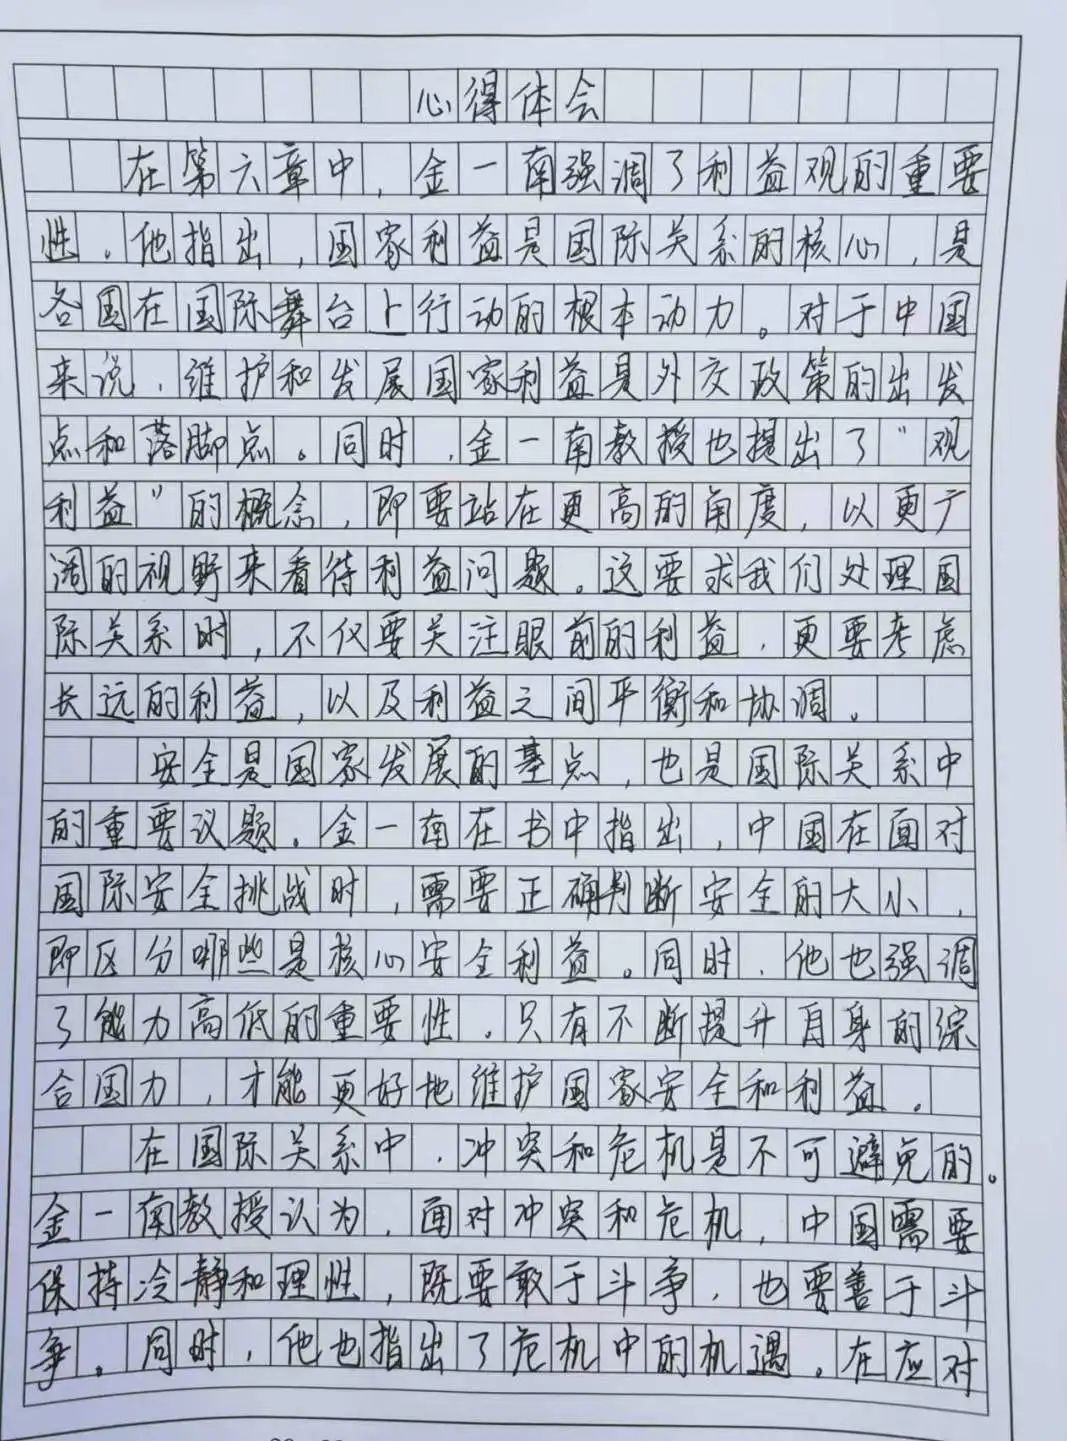 心得体会
在第六章中，金一南强调了利益观的重要
性。他指出，国家利益是国际关系的核心，是
各国在国际舞台上行动的根本动力。对于中国
来说，维护和发展国家利益是外交政策的出发
点和落脚点。同时，金一南教授也提出了“观
利益”的概念，即要站在更高的角度，以更广
阔的视野来看待利益问题。这要求我们处理国
际关系时，不仅要关注眼前的利益，更要考虑
长远的利益，以及利益之间平衡和协调。
安全是国家发展的基点，也是国际关系中
的重要议题。金一南在书中指出，中国在面对
国际安全挑战时，需要正确判断安全的大小，
即区分哪些是核心安全利益。同时，他也强调
了能力高低的重要性。只有不断提升自身的综
合国力，才能更好地维护国家安全和利益。
在国际关系中，冲突和危机是不可避免的。
金一南教授认为，面对冲突和危机，中国需要
保持冷静和理性，既要敢于斗争，也要善于斗
争。同时，他也指出了危机中的机遇。在应对